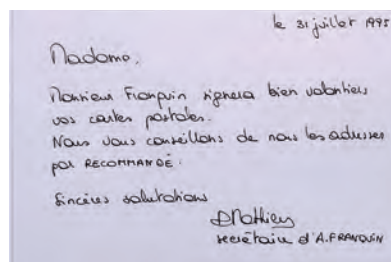 le 31 juillet 1995
Madame,
Monsieur Franquin signera bien volontiers
vos cartes postales.
Nous vous conseillons de nous les adresser
par RECOMMANDÉ.
Sincères salutations
DMathieu
secrétaire d'A. FRANQUIN